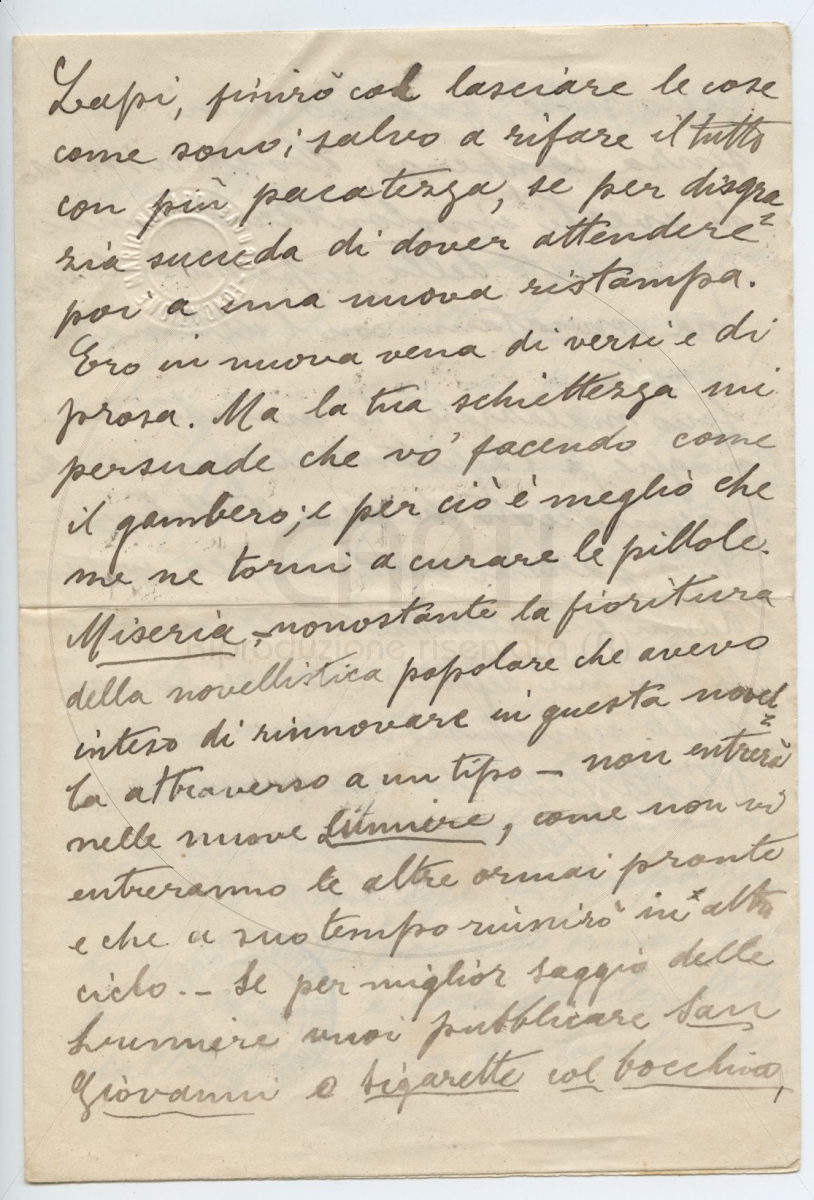 Lapi, finirò col lasciare le cose
come sono; salvo a rifare il tutto
con più pacatezza, se per disgra=
zia succeda di dover attendere
poi a una nuova ristampa.
Ero in nuova vena di versi e di
prosa. Ma la tua schiettezza mi
persuade che vo' facendo come
il gambero; e per ciò è meglio che
me ne torni a curare le pillole.
Miseria, - nonostante la fioritura
della novellistica popolare che avevo
inteso di rinnovare in questa novel=
la attraverso a un tipo - non entrerà
nelle nuove Lumiere, come non vi
entreranno le altre ormai pronte
e che a suo tempo riunirò in altro
ciclo. - Se per miglior saggio delle
Lumiere vuoi pubblicare San
Giovanni o Sigarette col bocchino,
riproduzione riservata